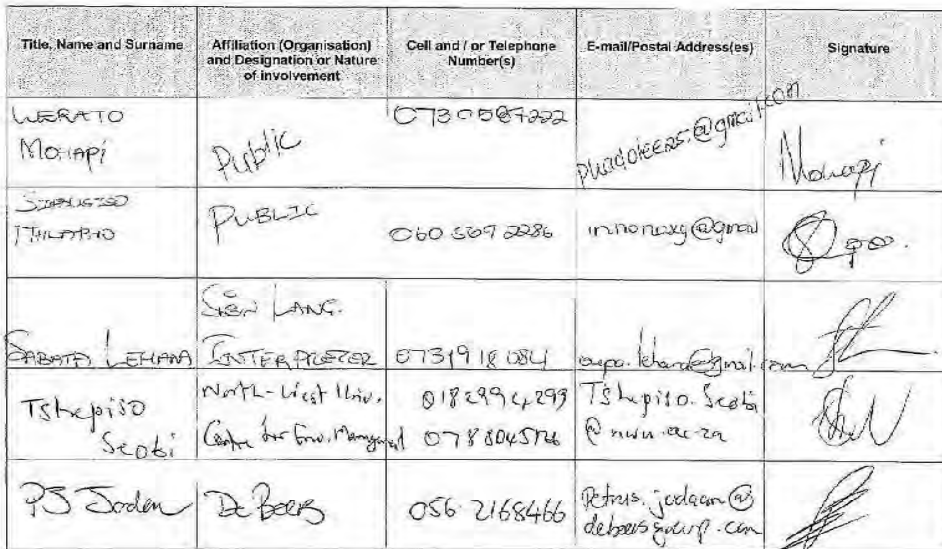 Title, Name and Surname
Affiliation (Organisation)
and Designation or Nature
of involvement
Cell and / or Telephone
Number(s)
E-mail/Postal Address(es)
Signature
LERATO
MOHAPI
Public
Mohapi
PUBLIC
060 5692286
SIGN LANG.
SABATA LEHANA
INTERPRETER
0731918084
oupa.lehana@gmail.com
Tshepiso
Seobi
North-West Univ.
Centre for Env. Management
0182994299
Tshepiso.Seobi
@nwu.ac.za
PJ Jodan
De Beers
056 2168466
Petrus.jodaan@
debeersgroup.com